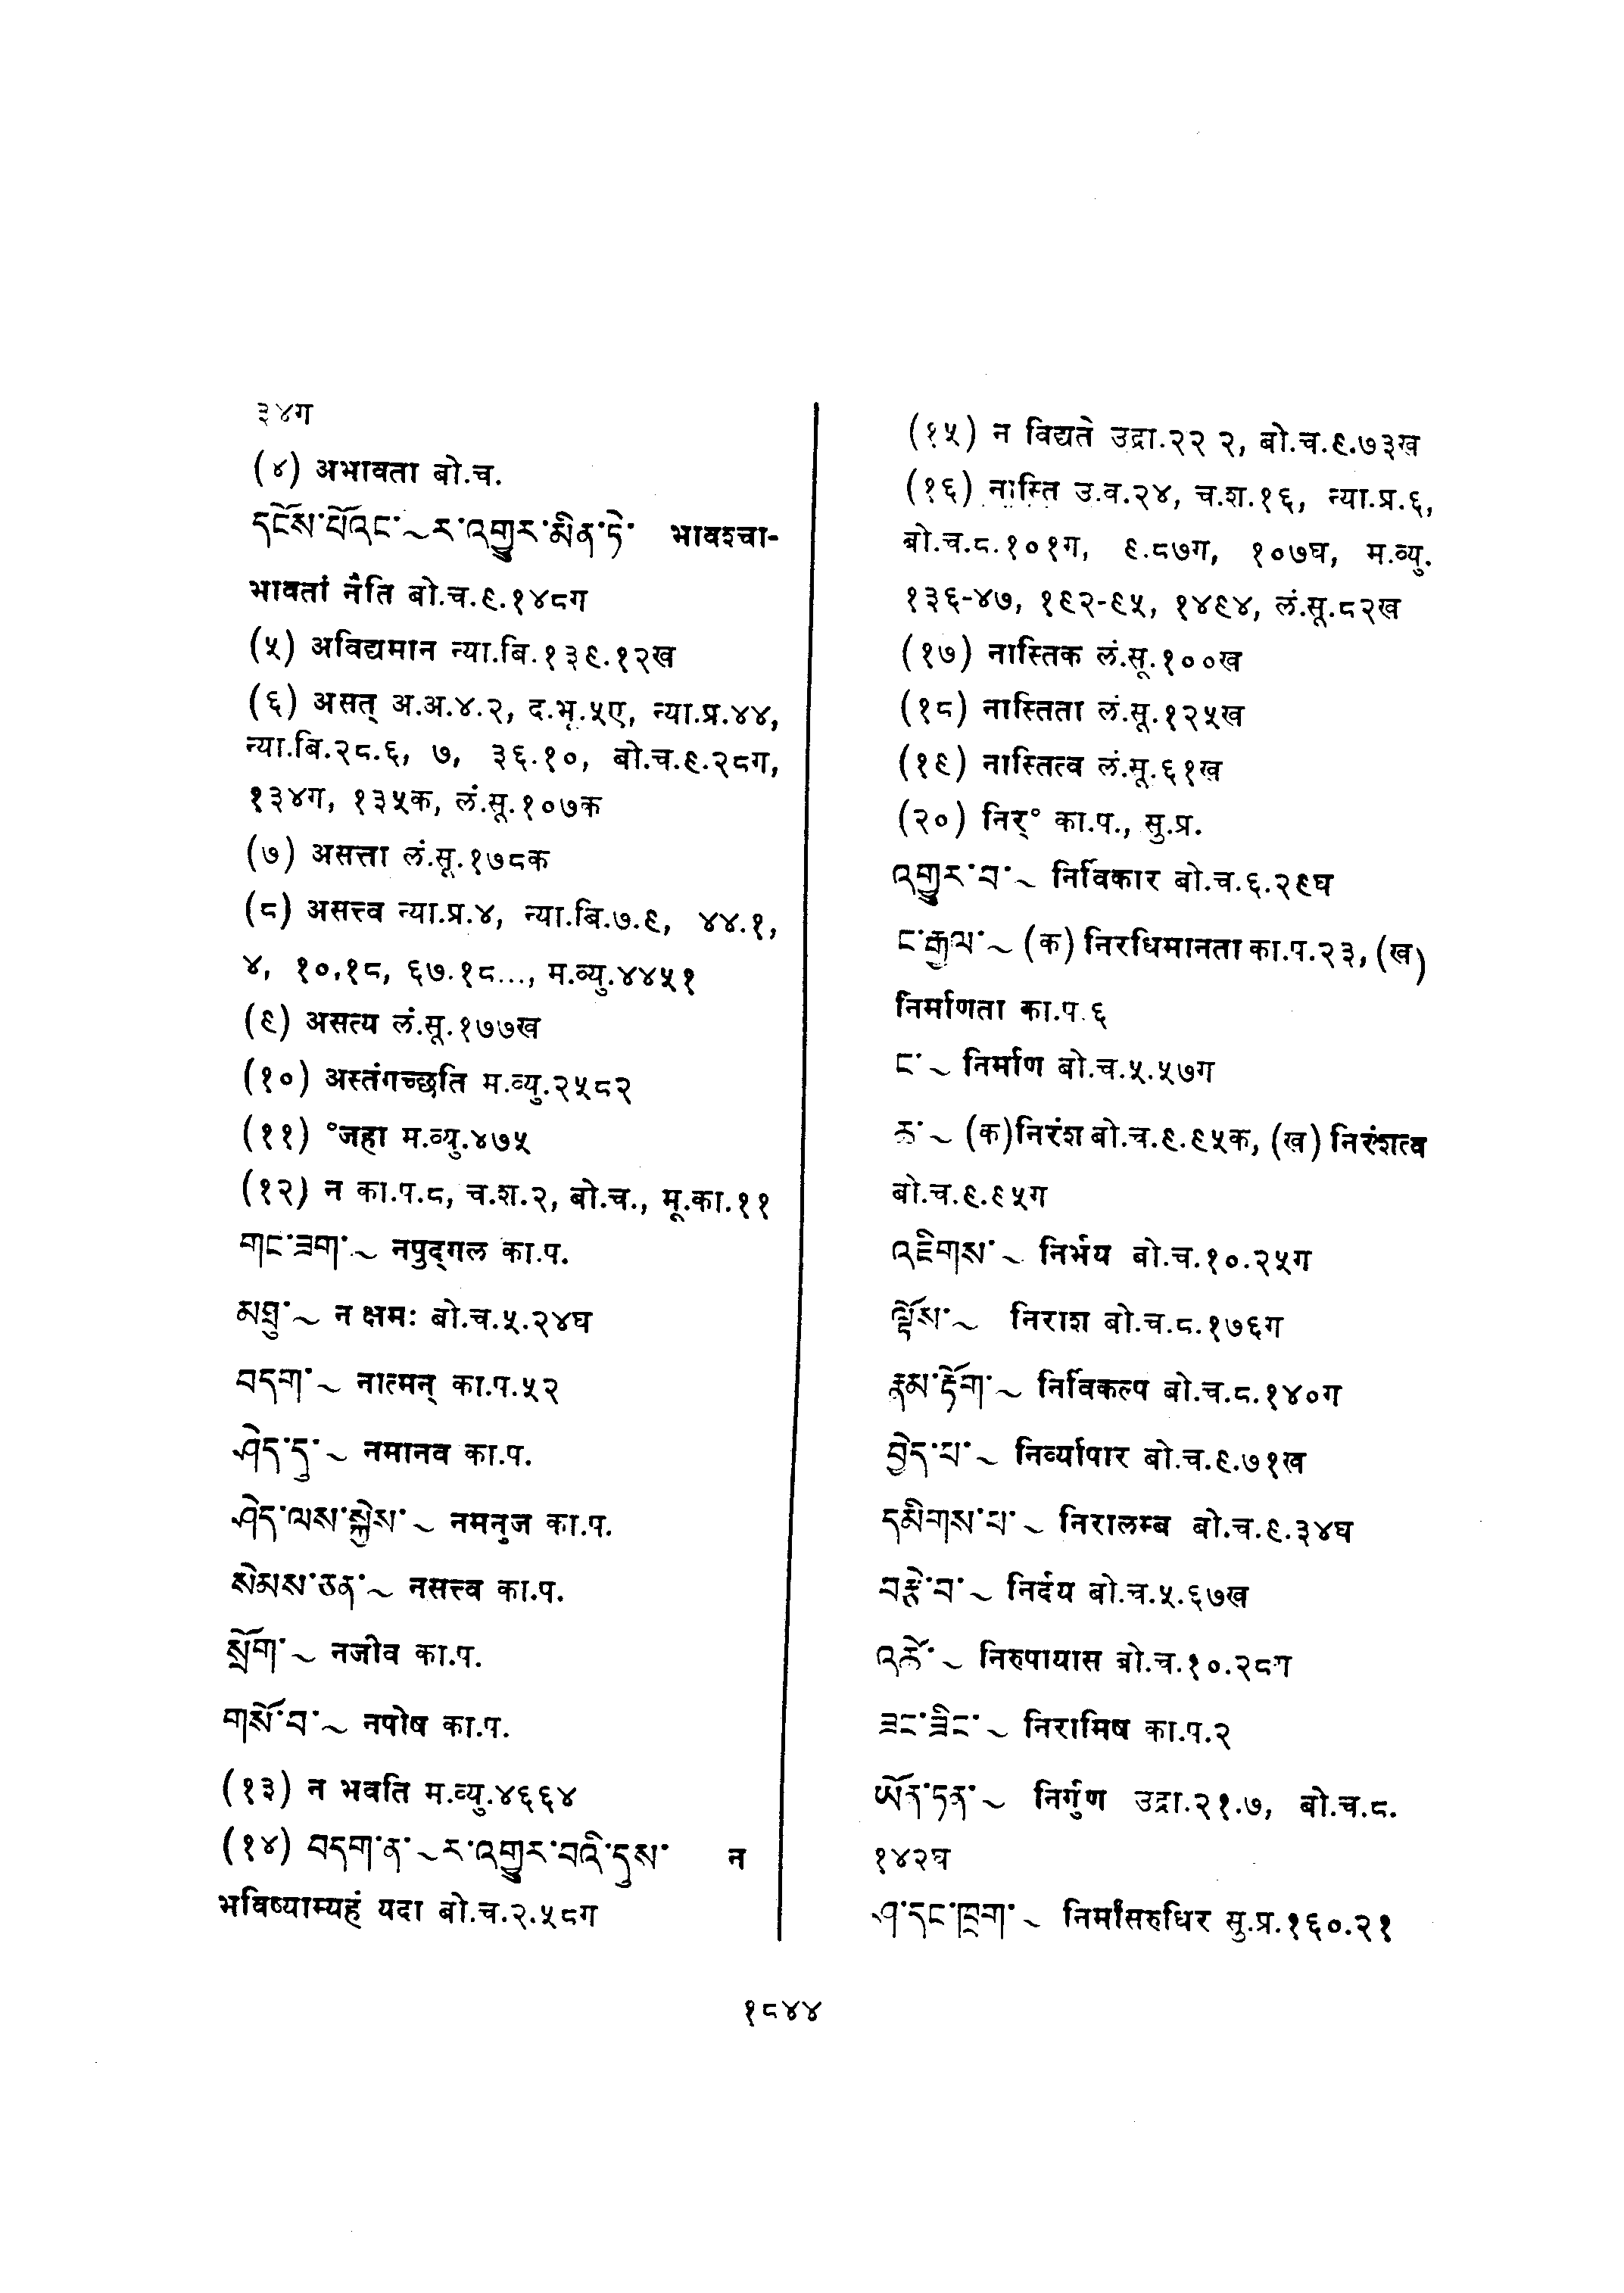 ३४ग
(४) अभावता बो.च.
དངོས་པོའང་~ར་འགྱུར་མིན་ཏེ་ भावश्चा-
भावतां नैति बो.च.९.१४८ग
(५) अविद्यमान न्या.बि.१३९.१२ख
(६) असत् अ.अ.४.२, द.भू.५ए, न्या.प्र.४४,
न्या.बि.२८.६, ७, ३६.१०, बो.च.९.२८ग,
१३४ग, १३५क, लं.सू.१०७क
(७) असत्ता लं.सू.१७८क
(८) असत्त्व न्या.प्र.४, न्या.बि.७.९, ४४.१,
४, १०,१८, ६७.१८..., म.व्यु.४४५१
(९) असत्य लं.सू.१७७ख
(१०) अस्तंगच्छति म.व्यु.२५८२
(११) °जहा म.व्यु.४७५
(१२) न का.प.८, च.श.२, बो.च., मू.का.११
གང་ཟག་~ नपुद्गल का.प.
མཐུ་~ न क्षमः बो.च.५.२४घ
བདག་~ नात्मन् का.प.५२
ཤེད་དུ་~ नमानव का.प.
ཤེད་ལས་སྐྱེས་~ नमनुज का.प.
སེམས་ཅན་~ नसत्त्व का.प.
སྲོག་~ नजीव का.प.
གསོ་བ་~ नपोष का.प.
(१३) न भवति म.व्यु.४६६४
(१४) བདག་ན་~ར་འགྱུར་བའི་དུས་ न
भविष्याम्यहं यदा बो.च.२.५८ग
(१५) न विद्यते उद्रा.२२ २, बो.च.९.७३ख
(१६) नास्ति उ.व.२४, च.श.१६, न्या.प्र.६,
बो.च.८.१०१ग, ९.८७ग, १०७घ, म.व्यु.
१३६-४७, १९२-९५, १४९४, लं.सू.८२ख
(१७) नास्तिक लं.सू.१००ख
(१८) नास्तिता लं.सू.१२५ख
(१९) नास्तित्व लं.सू.६१ख
(२०) निर्° का.प., सु.प्र.
འགྱུར་བ་~ निर्विकार बो.च.६.२९घ
ང་རྒྱལ་~ (क) निरधिमानता का.प.२३, (ख)
निर्माणता का.प.६
ང་~ निर्माण बो.च.५.५७ग
ཆ་~ (क) निरंश बो.च.९.९५क, (ख) निरंशत्व
बो.च.९.९५ग
འཇིགས་~ निर्भय बो.च.१०.२५ग
ལྟོས་~ निराश बो.च.८.१७६ग
རྣམ་རྟོག་~ निर्विकल्प बो.च.८.१४०ग
བྱེད་པ་~ निर्व्यापार बो.च.९.७१ख
དམིགས་པ་~ निरालम्ब बो.च.९.३४घ
བརྩེ་བ་~ निर्दय बो.च.५.६७ख
འཚེ་~ निरुपायास बो.च.१०.२८ग
ཟང་ཟིང་~ निरामिष का.प.२
ཡོན་ཏན་~ निर्गुण उद्रा.२१.७, बो.च.८.
१४२घ
ཤ་དང་ཁྲག་~ निर्मांसरुधिर सु.प्र.१६०.२१
१८४४